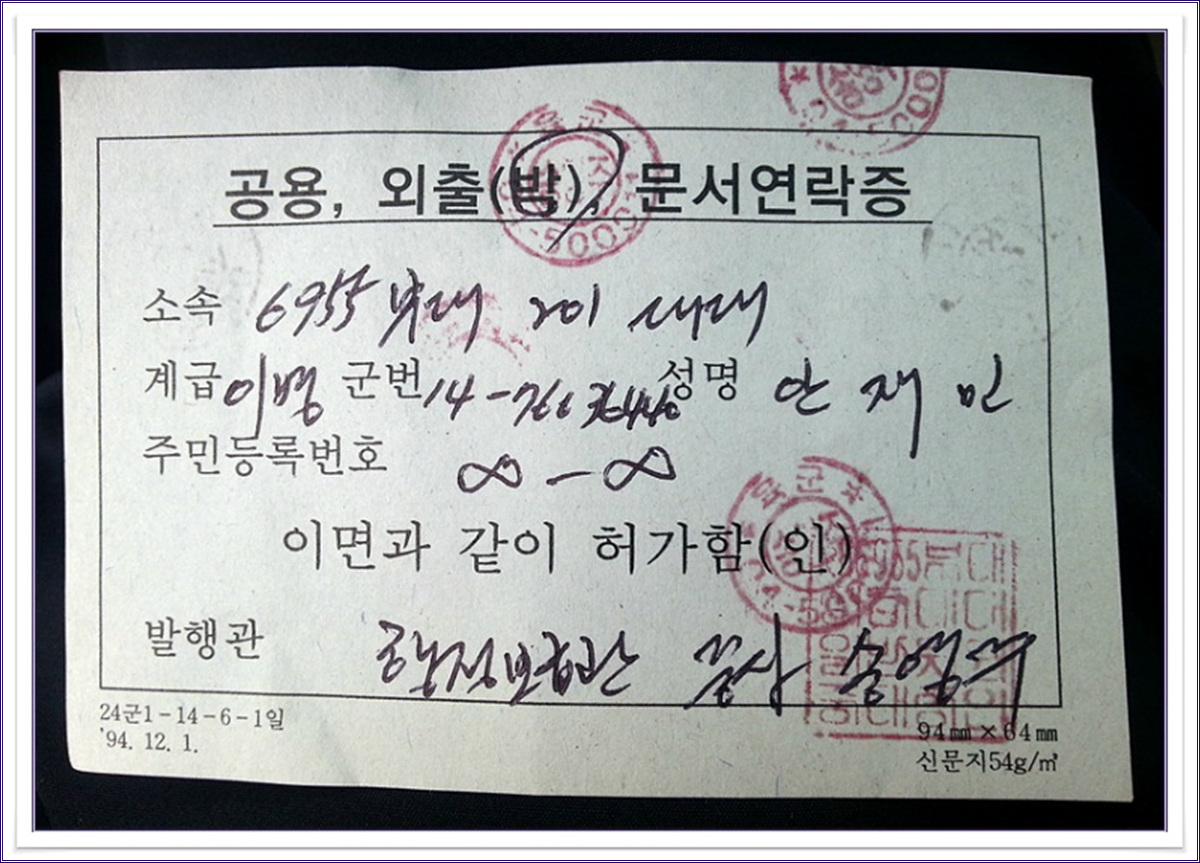 공용, 외출(박), 문서연락증
소속 6955부대 201 대대
계급 이병 군번 14-76 성명 안재민
주민등록번호 ∞-∞
이면과 같이 허가함(인)
발행관 행정보급관 중사 송영
24군1-14-6-1일
'94. 12. 1.
94㎜×64㎜
신문지54g/㎡